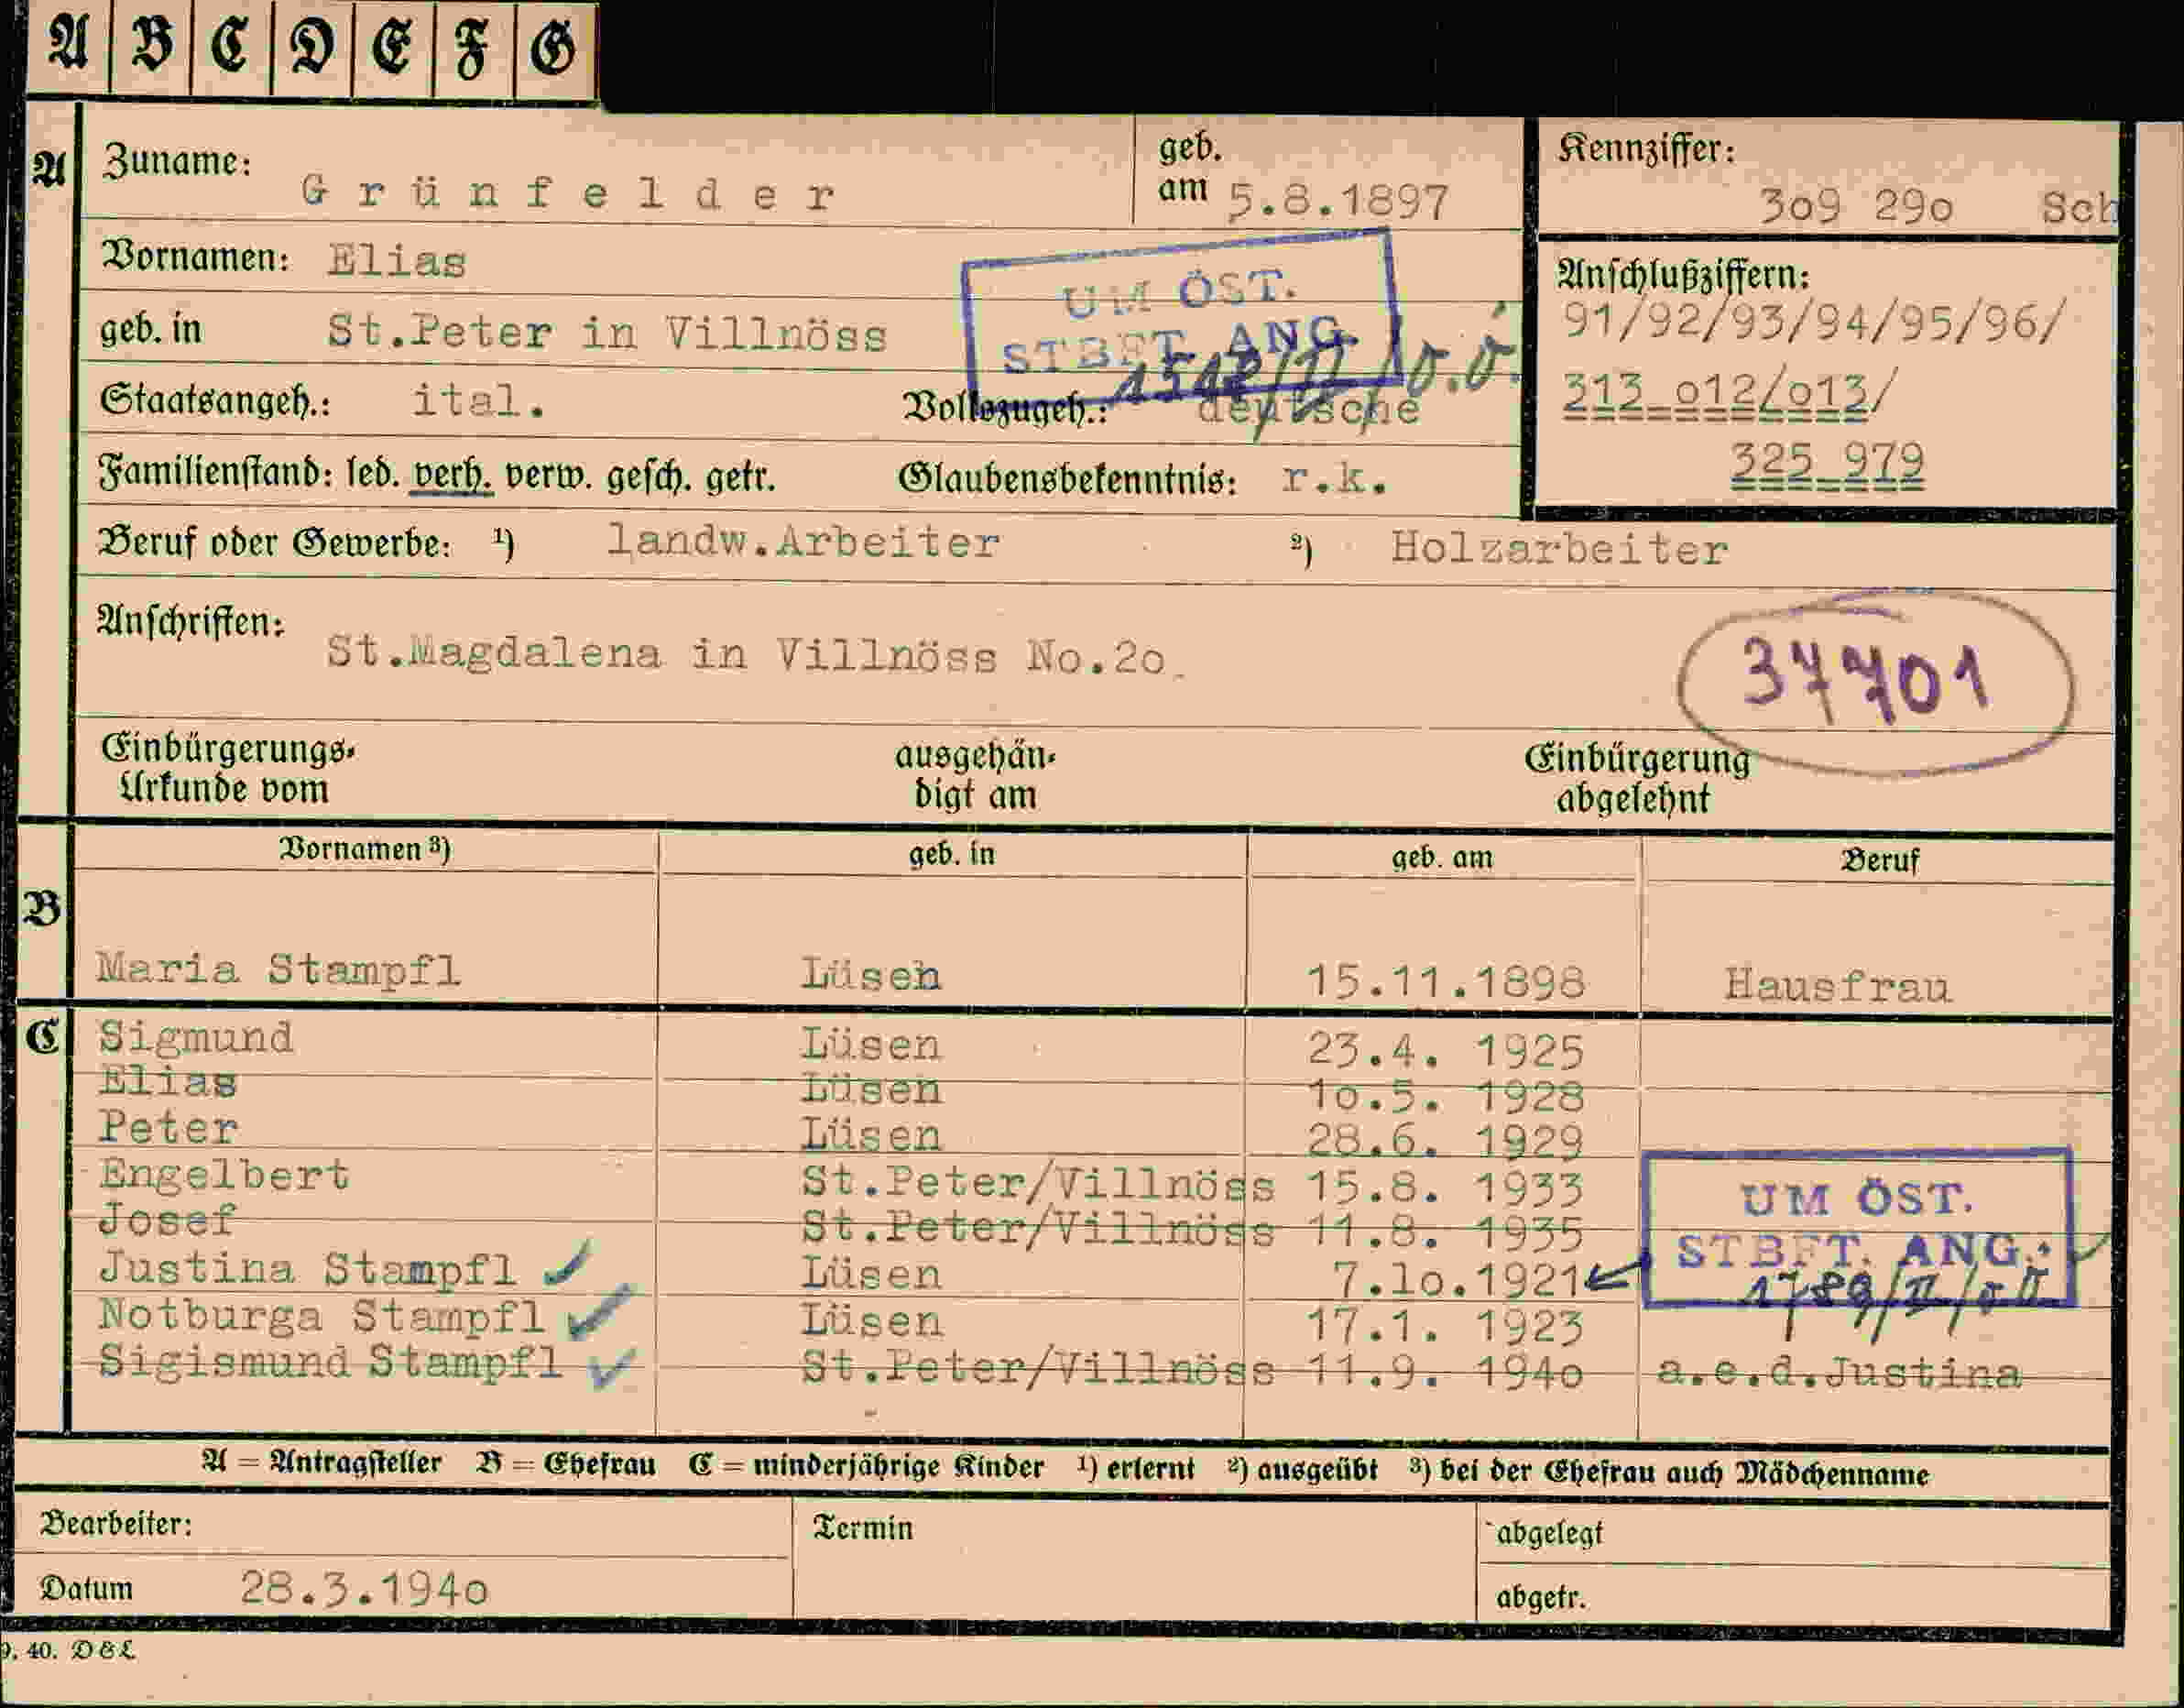 A B C D E F G
A Zuname: Grünfelder geb. am 5.8.1897
Kennziffer: 3o9 29o Sch
Vornamen: Elias
UM ÖST.
STBFT. ANG.
geb. in St.Peter in Villnöss
Anschlußziffern:
91/92/93/94/95/96/
313 o12/o13/
325 979
Staatsangeh.: ital. Volkszugeh.: deutsche
Familienstand: led. verh. verw. gesch. getr. Glaubensbekenntnis: r.k.
Beruf oder Gewerbe: ¹) landw.Arbeiter ²) Holzarbeiter
Anschriften: St.Magdalena in Villnöss No.2o.
37701
Einbürgerungs-Urkunde vom ausgehändigt am Einbürgerung abgelehnt
Vornamen ³) geb. in geb. am Beruf
B Maria Stampfl Lüsen 15.11.1898 Hausfrau
C Sigmund Lüsen 23.4. 1925
Elias Lüsen 1o.5. 1928
Peter Lüsen 28.6. 1929
Engelbert St.Peter/Villnöss 15.8. 1933
Josef St.Peter/Villnöss 11.8. 1935
UM ÖST.
STBFT. ANG.:
Justina Stampfl Lüsen 7.1o.1921
Notburga Stampfl Lüsen 17.1. 1923
Sigismund Stampfl St.Peter/Villnöss 11.9. 194o a.e.d.Justina
A = Antragsteller B = Ehefrau C = minderjährige Kinder ¹) erlernt ²) ausgeübt ³) bei der Ehefrau auch Mädchenname
Bearbeiter: Termin abgelegt
Datum 28.3.194o abgetr.
9. 40. D & L